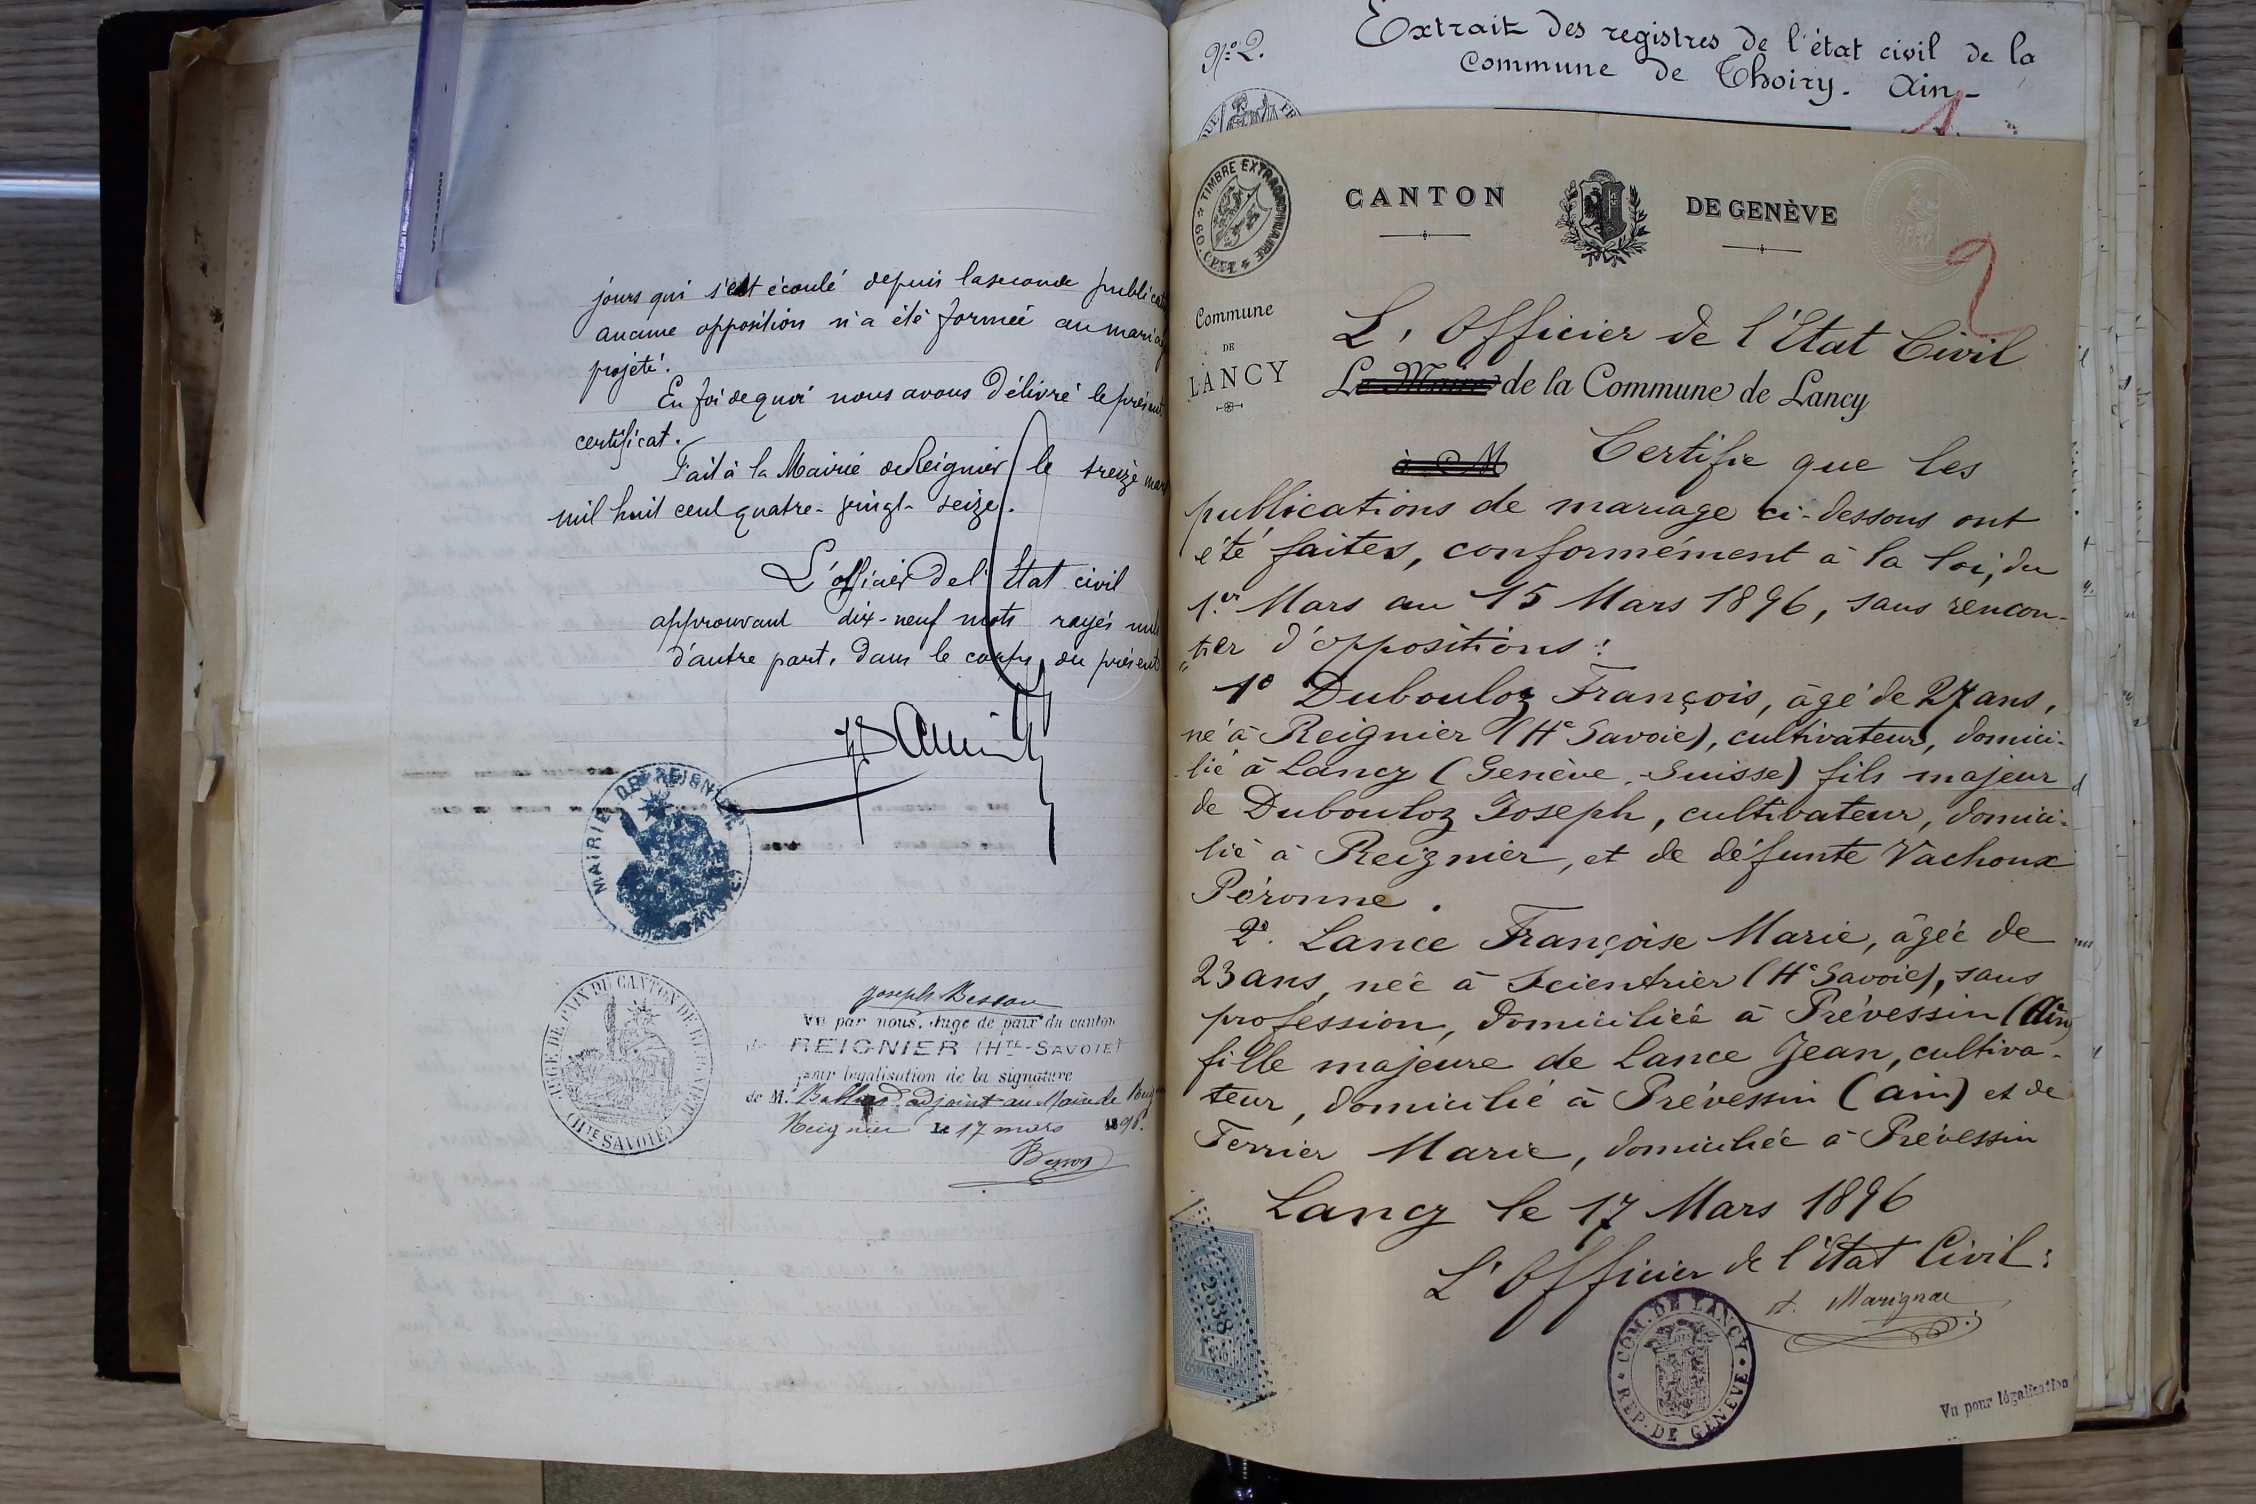 jours qui s'est écoulé depuis la seconde publicat
aucune opposition n'a été formée au mariag
projeté.
En foi de quoi nous avons délivré le présent
certificat.
Fait à la Mairie de Reignier le treize mars
mil huit cent quatre-vingt-seize.
L'officier de l'État civil
approuvant dix-neuf mots rayés nuls
d'autre part, dans le corps du présent
MAIRIE DE REIGNIER
JUGE DE PAIX DU CANTON DE REIGNIER
(HTE SAVOIE)
Joseph Besson
Vu par nous, Juge de paix du canton
de REIGNIER (HTE-SAVOIE)
pour légalisation de la signature
de M. adjoint au Maire de
Reignier le 17 mars 1896.
Besson
No 2.
Extrait des registres de l'état civil de la
Commune de Thoiry. Ain-
1
TIMBRE EXTRAORDINAIRE
60 CENT.
CANTON DE GENÈVE
2
Commune
DE
LANCY
L'Officier de l'Etat Civil
Le Maire de la Commune de Lancy
à M Certifie que les
publications de mariage ci-dessous ont
été faites, conformément à la loi, du
1.er Mars au 15 Mars 1896, sans rencon-
"trer d'oppositions:
1o Dubouloz François, âgé de 27 ans,
né à Reignier (Hte Savoie), cultivateur, domici-
lié à Lancy (Genève, Suisse) fils majeur
de Dubouloz Joseph, cultivateur, domici-
lié à Reignier, et de défunte Vachoux
Péronne.
2o. Lance Françoise Marie, âgée de
23 ans, née à Scientrier (Hte Savoie), sans
profession, domiciliée à Prévessin (Ain)
fille majeure de Lance Jean, cultiva-
teur, domicilié à Prévessin (Ain) et de
Terrier Marie, domiciliée à Prévessin
Lancy le 17 Mars 1896
L'Officier de l'Etat Civil:
Marignac
2538
COM. DE LANCY
REP. DE GENÈVE
Vu pour légalisation